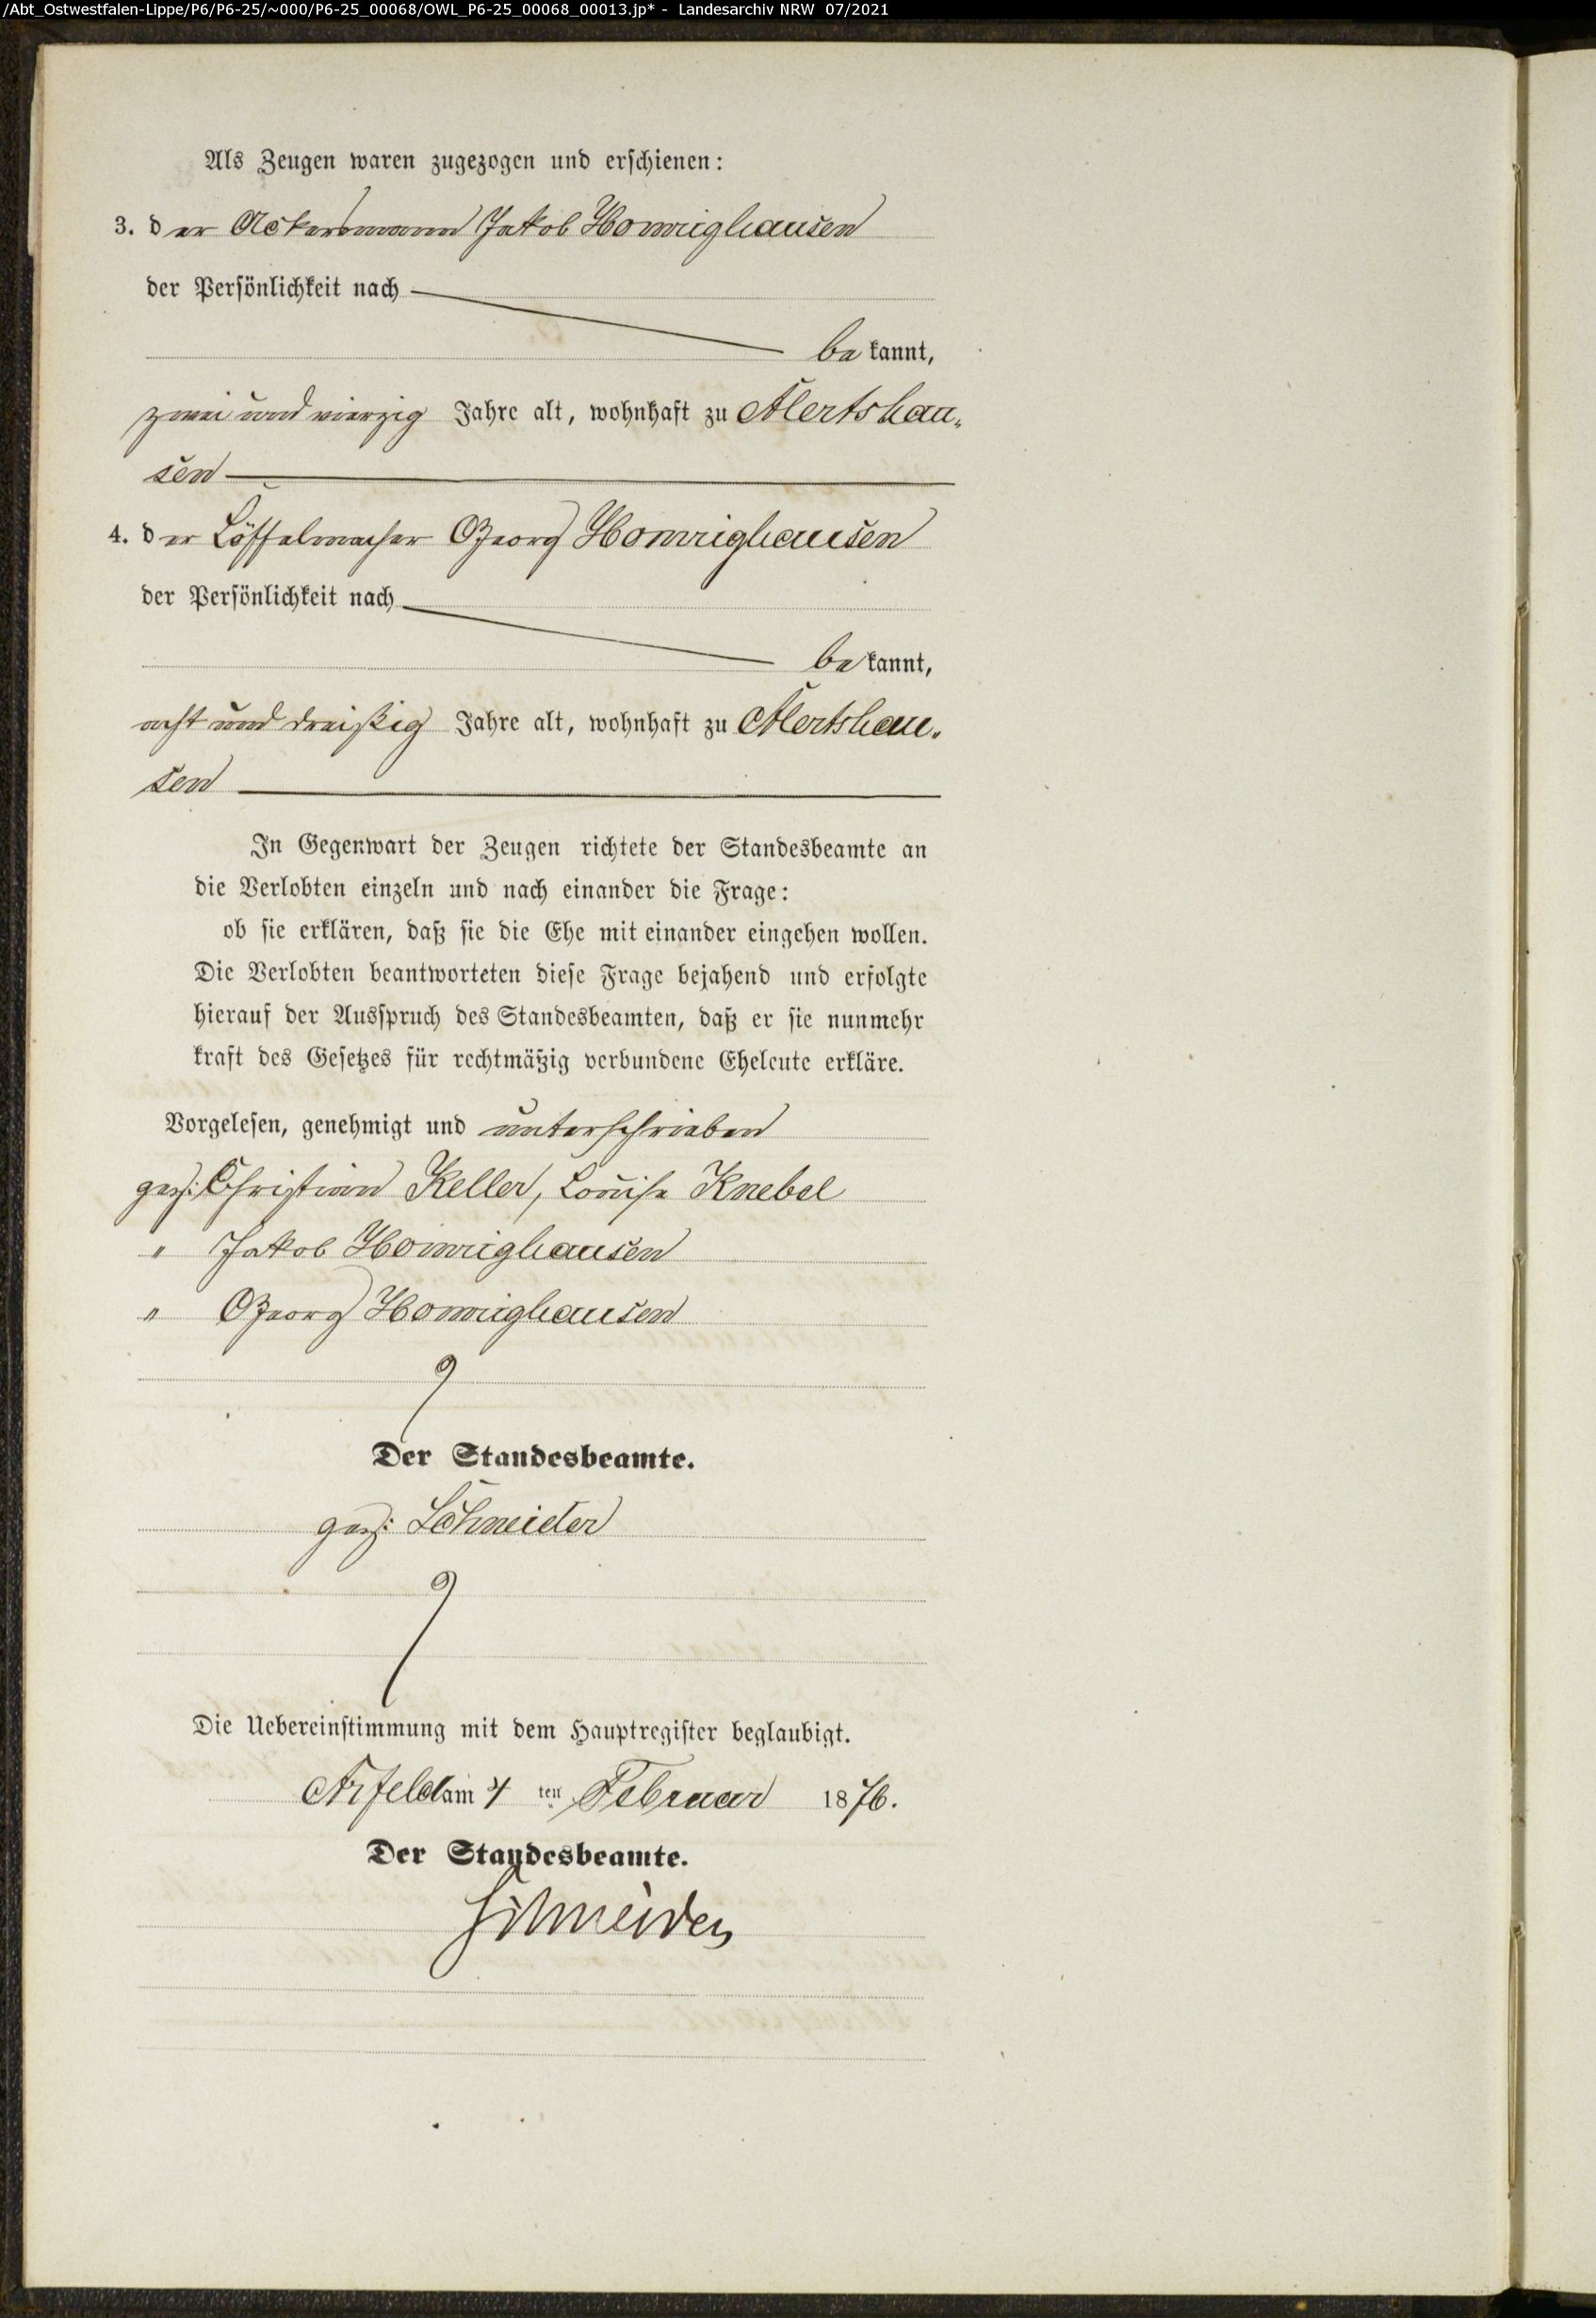 /Abt_Ostwestfalen-Lippe/P6/P6-25/~000/P6-25_00068/OWL_P6-25_00068_00013.jp* - Landesarchiv NRW 07/2021
Als Zeugen waren zugezogen und erschienen:
3. der Ackersmann Jakob Homrighausen
der Persönlichkeit nach
bekannt,
zwei und vierzig Jahre alt, wohnhaft zu Alertshau-
sen
4. der Löffelmacher Georg Homrighausen
der Persönlichkeit nach
bekannt,
acht und dreißig Jahre alt, wohnhaft zu Alertshau-
sen
In Gegenwart der Zeugen richtete der Standesbeamte an
die Verlobten einzeln und nach einander die Frage:
ob sie erklären, daß sie die Ehe mit einander eingehen wollen.
Die Verlobten beantworteten diese Frage bejahend und erfolgte
hierauf der Ausspruch des Standesbeamten, daß er sie nunmehr
kraft des Gesetzes für rechtmäßig verbundene Eheleute erkläre.
Vorgelesen, genehmigt und unterschrieben
gez: Christian Keller, Louise Knebel
" Jakob Homrighausen
" Georg Homrighausen
Der Standesbeamte.
gez: Schneider
Die Uebereinstimmung mit dem Hauptregister beglaubigt.
Arfeld am 4 ten Februar 1876.
Der Standesbeamte.
Schneider